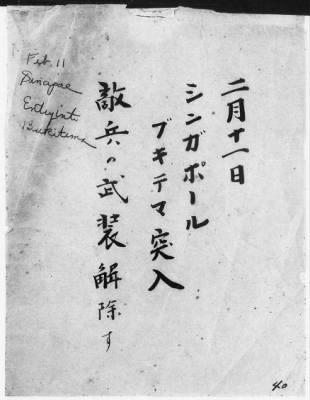 二月十一日
シンガポール
ブキテマ突入
敵兵の武装解除す
Feb. 11
Singapore
Entry into
Bukitema
40